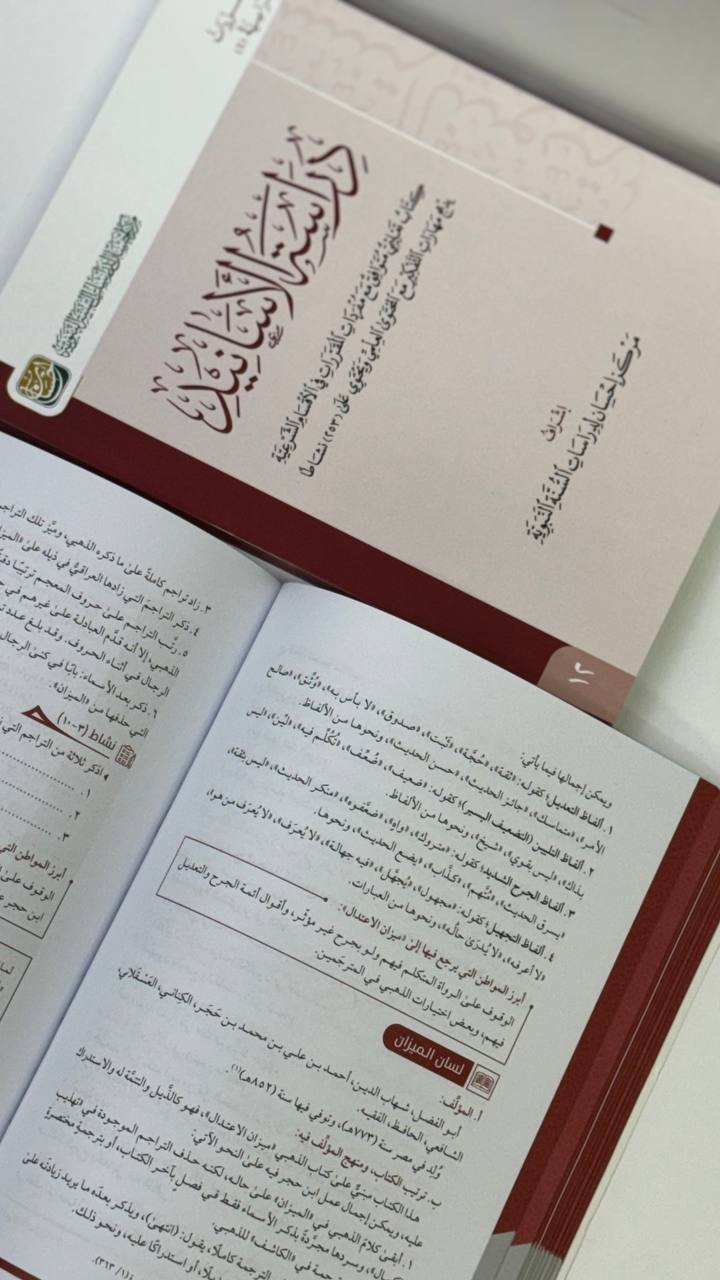 دراسة الأسانيد
كتاب تعليمي متوافق مع مفردات المقررات في الأقسام الشرعية
يدمج مهارات التفكير مع المحتوى العلمي ويحتوي على (٢٥٣) نشاطًا
إشراف
مركز إحسان لدراسات السنة النبوية
١٢
٣. زاد تراجم كاملةً على ما ذكره الذهبي، وميَّز تلك التراجم
٤. ذكر التراجم التي زادها العراقيُّ في ذيله على «الميزان
٥. رتَّب التراجم على حروف المعجم ترتيبًا
الذهبي، إلا أنه قدَّم العبادلة على غيرهم في
الرجال في أثناء الحروف. وقد بلغ عدد
٦. ذكر بعد الأسماء: بابًا في كنى الرجال
التي حذفها من «الميزان».
نشاط (٣-١٠)
اذكر ثلاثة من التراجم التي
١.
٢.
٣.
أبرز المواطن التي
الوقوف على
ابن حجر
ويمكن إجمالها فيما يأتي:
١. ألفاظ التعديل: كقوله: «ثقة»، «حُجَّة»، «ثَبْت»، «صدوق»، «لا بأس به»، «وُثِّق»، «صالح
الأمر»، «متماسك»، «جائز الحديث»، «حسن الحديث»، ونحوها من الألفاظ.
٢. ألفاظ التليين (التضعيف اليسير): كقوله: «ضعيف»، «ضُعِّف»، «تُكُلِّم فيه»، «ليِّن»، «ليس
بذاك»، «ليس بقوي»، «شيخ»، ونحوها من الألفاظ.
٣. ألفاظ الجرح الشديد: كقوله: «متروك»، «واهٍ»، «ضعَّفوه»، «منكر الحديث»، «ليس بثقة»،
«يسرق الحديث»، «مُتَّهم»، «كذَّاب»، «يضع الحديث»، ونحوها.
٤. ألفاظ التجهيل: كقوله: «مجهول»، «يُجهَّل»، «فيه جهالة»، «لا يُعرَف»، «لا يُعرَف من هو»،
«لا أعرفه»، «لا يُدرَى حاله»، ونحوها من العبارات.
أبرز المواطن التي يرجع فيها إلى «ميزان الاعتدال»:
الوقوف على الرواة المتكلم فيهم ولو بجرح غير مؤثِّر، وأقوال أئمة الجرح والتعديل
فيهم، وبعض اختيارات الذهبي في المترجَمين.
لسان الميزان
أ. المؤلِّف:
أبو الفضل، شهاب الدين، أحمد بن علي بن محمد بن حَجَر، الكِناني، العَسْقلاني
الشافعي، الحافظ، الفقيه.
وُلد في مصر سنة (٧٧٣هـ)، وتوفي فيها سنة (٨٥٢هـ)(١).
ب. ترتيب الكتاب، ومنهج المؤلِّف فيه:
هذا الكتاب مبنيٌّ على كتاب الذهبي «ميزان الاعتدال»، فهو كالذَّيل والتتمَّة له والاستدراك
عليه، ويمكن إجمال عمل ابن حجر فيه على النحو الآتي:
١. أبقى كلامَ الذهبي في «الميزان» على حاله، لكنه حذف التراجم الموجودة في «تهذيب
الكمال»، وسردها مجرَّدةً بذكر الأسماء فقط في فصلٍ بآخر الكتاب، أو بترجمةٍ مختصرةٍ
الترجمة كاملًا، يقول: (انتهى)، ويذكر بعدَه ما يريد زيادتَه على
أو استدراكًا عليه، ونحو ذلك.
(١/ ٣٦٣).